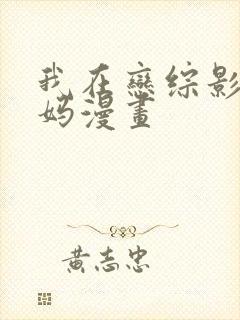 我在戀綜影
妈漫畫
黃志忠